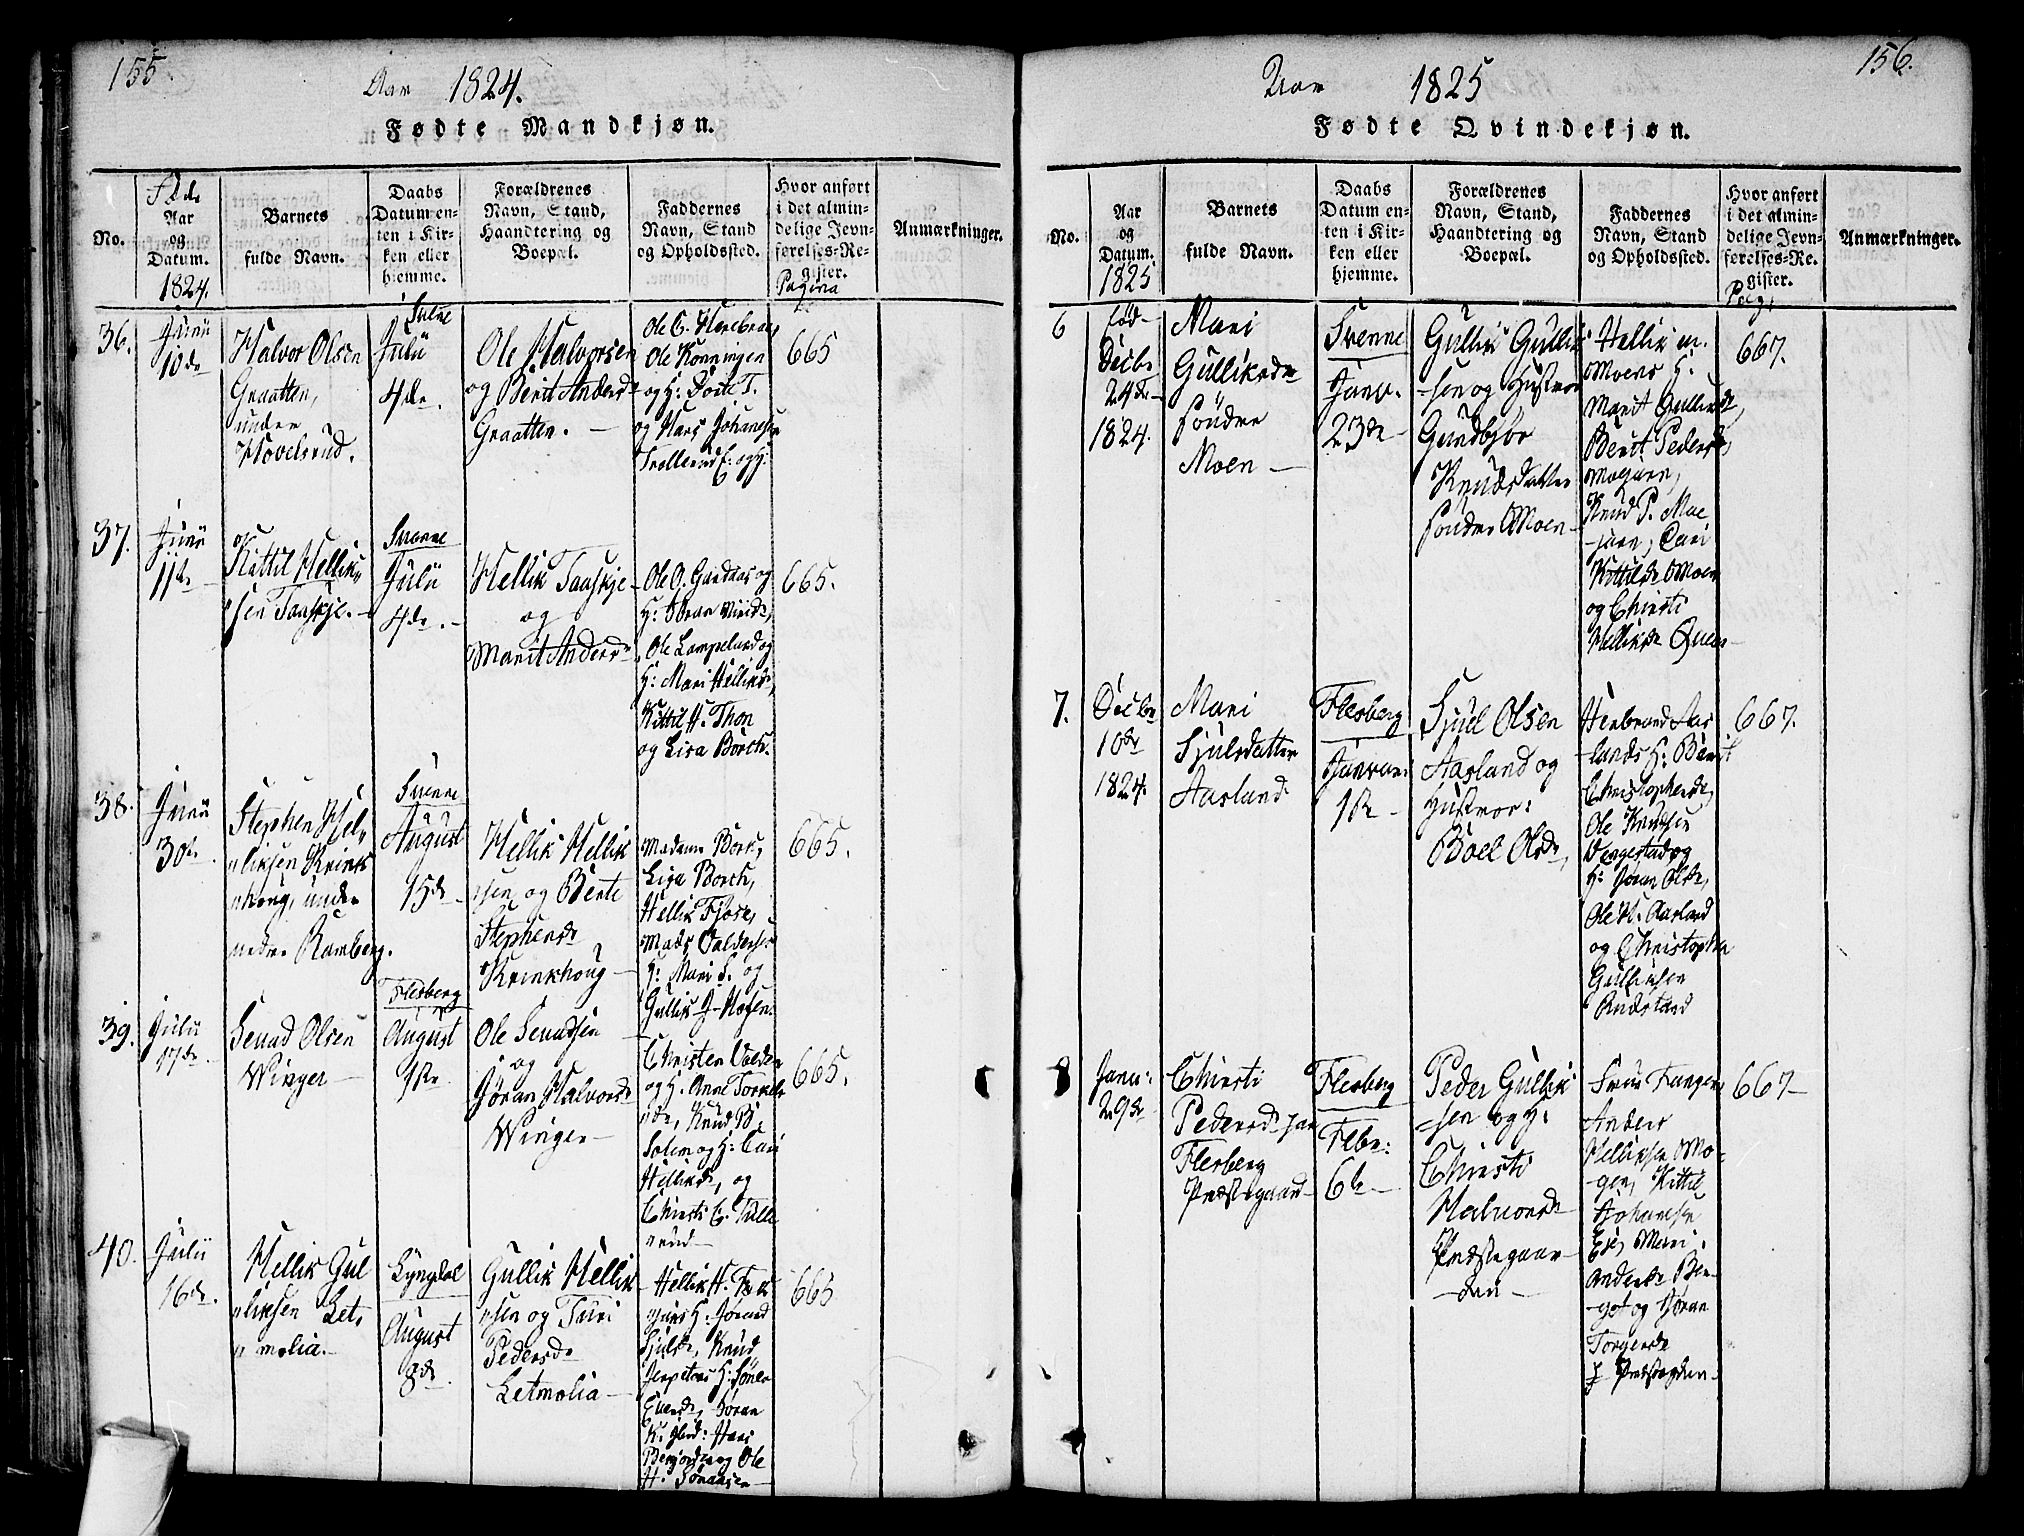 155.
Aar 1824.
Fødte Mandkjøn.
No.
Føde
Aar
og
Datum.
1824.
Barnets
fulde Navn.
Daabs
Datum en-
ten i Kir-
ken eller
hjemme.
Forældrenes
Navn, Stand,
Haandtering og
Boepæl.
Faddernes
Navn, Stand
og Opholdssted.
Hvor anført
i det almin-
delige Jevn-
førelses-Re-
gister.
Pagina
Anmærkninger.
36.
Junii
10de
Halvor Olsen
Graatten,
under
Hovelsrud.
Svene
Julii
4de.
Ole Halvorsen
og Berit Andersd
Graatten. —
Ole Konningen
og H: Dorte T.
og Hans Johansen
665
37.
Junii
11te
Kittil Hellik„
„sen Taaskje. —
Svenne
Julii
4de. —
Hellik Taaskje
og
Marit Andersd
Ole O. Gaadaas og
H: Jøran
Ole Lampeland og
H: Mari Helliksd,
Kittil H. Thon
og Lisa Borch.
665.
38.
Junii
30de.
Stephen Hel„
„liksen Krink
„houg, under
nedre Ramberg.
Svenne
August
15de
Hellik Hellik
„sen og Berte
Stephensd
Krinkhoug —
Madame Bork,
Lisa Borch,
Hellik Fjose,
Mads
H: Mari S. og
Gullik J. Mogen.
665.
39.
Julii
17de
Sevad Olsen
Winger —
Flesberg
August
1te
Ole Sevadsen
og
Jøran Halvorsd
Winger —
Christen
og H. Anne Torkels
„de, Knud B.
Solem og H: Cari
Helliksd, og
Christi C. Tulle
„rud —
665.
40.
Julii
16de.
Hellik Gul
„liksen Let„
„molia. —
Lyngdal
August
8de.
Gullik Hellik
„sen og Turi
Pedersd
Letmolia —
Hellik H.
H: Jørand
Sjulsd, Knud
Jøran
Ole
665
156.
Aar 1825
Fødte Qvindekjøn.
No.
Aar
og
Datum.
1825
Barnets
fulde Navn.
Daabs
Datum en-
ten i Kir-
ken eller
hjemme.
Forældrenes
Navn, Stand,
Haandtering og
Boepæl.
Faddernes
Navn, Stand
og Opholdssted.
Hvor anført
i det almin-
delige Jevn-
førelses-Re-
gister.
Pag.
Anmærkninger.
6
fød
Decbr
24de
1824.
Mari
Gulliksdr
søndre
Moen —
Svenne
Janv.
23de
Gullik Gullik
-sen og Hustroe
Gundbjør
Knudsdatter
søndre Moen —
Hellik m.
Moens H:
Marit Gulliksd,
Berit Pedersd,
Mogaren,
Knud P. Moe
-garen, Cari
Kittilsd Moen
og Christi
Helliksd
667.
7.
Decbr
10de
1824.
Mari
Sjulsdatter
Aasland
Flesberg
Januar.
1te —
Sjul Olsen
Aasland og
Hustroe:
Boel Olsd,
Herbrand Aas
-lands H: Berit
Christophersd,
Ole Knudsen
Vengestad og
H: Jøran Olsd,
Ole H. Aasland
og Christopher
Gulliksen
Rudsland
667.
8
Janu:
29de
Christi
Pedersd
Flesberg
Præstegaard —
Flesberg
Febr:
6te —
Peder Gullik
-sen og H:
Christi
Halvorsd
Præstegaar
-den —
Anders
Helliksen Mo-
-gen, Kittil
Johansen
Mari
Andersd Ben-
-get og Jøran
Torgersd
667 —